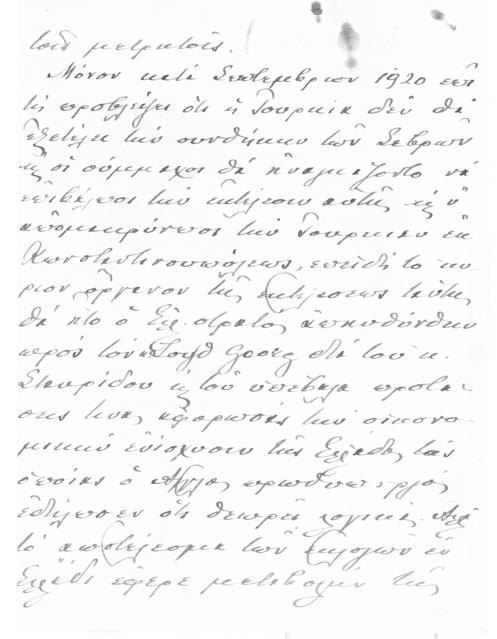 τοῦ μετρητοῖς.
Μόνον κατὰ Σεπτέμβριον 1920 ἐπὶ
τῇ προβλέψει ὅτι ἡ Τουρκία δὲν θὰ
ἐξετέλει τὴν συνθήκην τῶν Σεβρῶν
κ̧ οἱ σύμμαχοι θὰ ἠναγκάζοντο νὰ
ἐπιβάλωσι τὴν ἐκτέλεσιν αὐτῆς κ̧ ν'
ἀπομακρύνωσι τὴν Τουρκίαν ἐκ
Κωνσταντινουπόλεως, ἐπειδὴ τὸ κύ-
ριον ὄργανον τῆς ἐκτελέσεως ταύτης
θὰ ἦτο ὁ Ἑλ. στρατὸς ἀπηυθύνθην
πρὸς τὸν Λούδ Georg διὰ τοῦ κ.
Σταυρίδου κ̧ τοῦ ὑπέβαλα προτά-
σεις τινὰς ἀφορώσας τὴν οἰκονο-
μικὴν ἐνίσχυσιν τῆς Ἑλλάδος τὰς
ὁποίας ὁ Ἄγγλος πρωθυπουργὸς
ἐδήλωσεν ὅτι θεωρεῖ λογικάς. Ἀλλὰ
τὸ ἀποτέλεσμα τῶν ἐκλογῶν ἐν
Ἑλλάδι ἔφερε μεταβολὴν τῆς